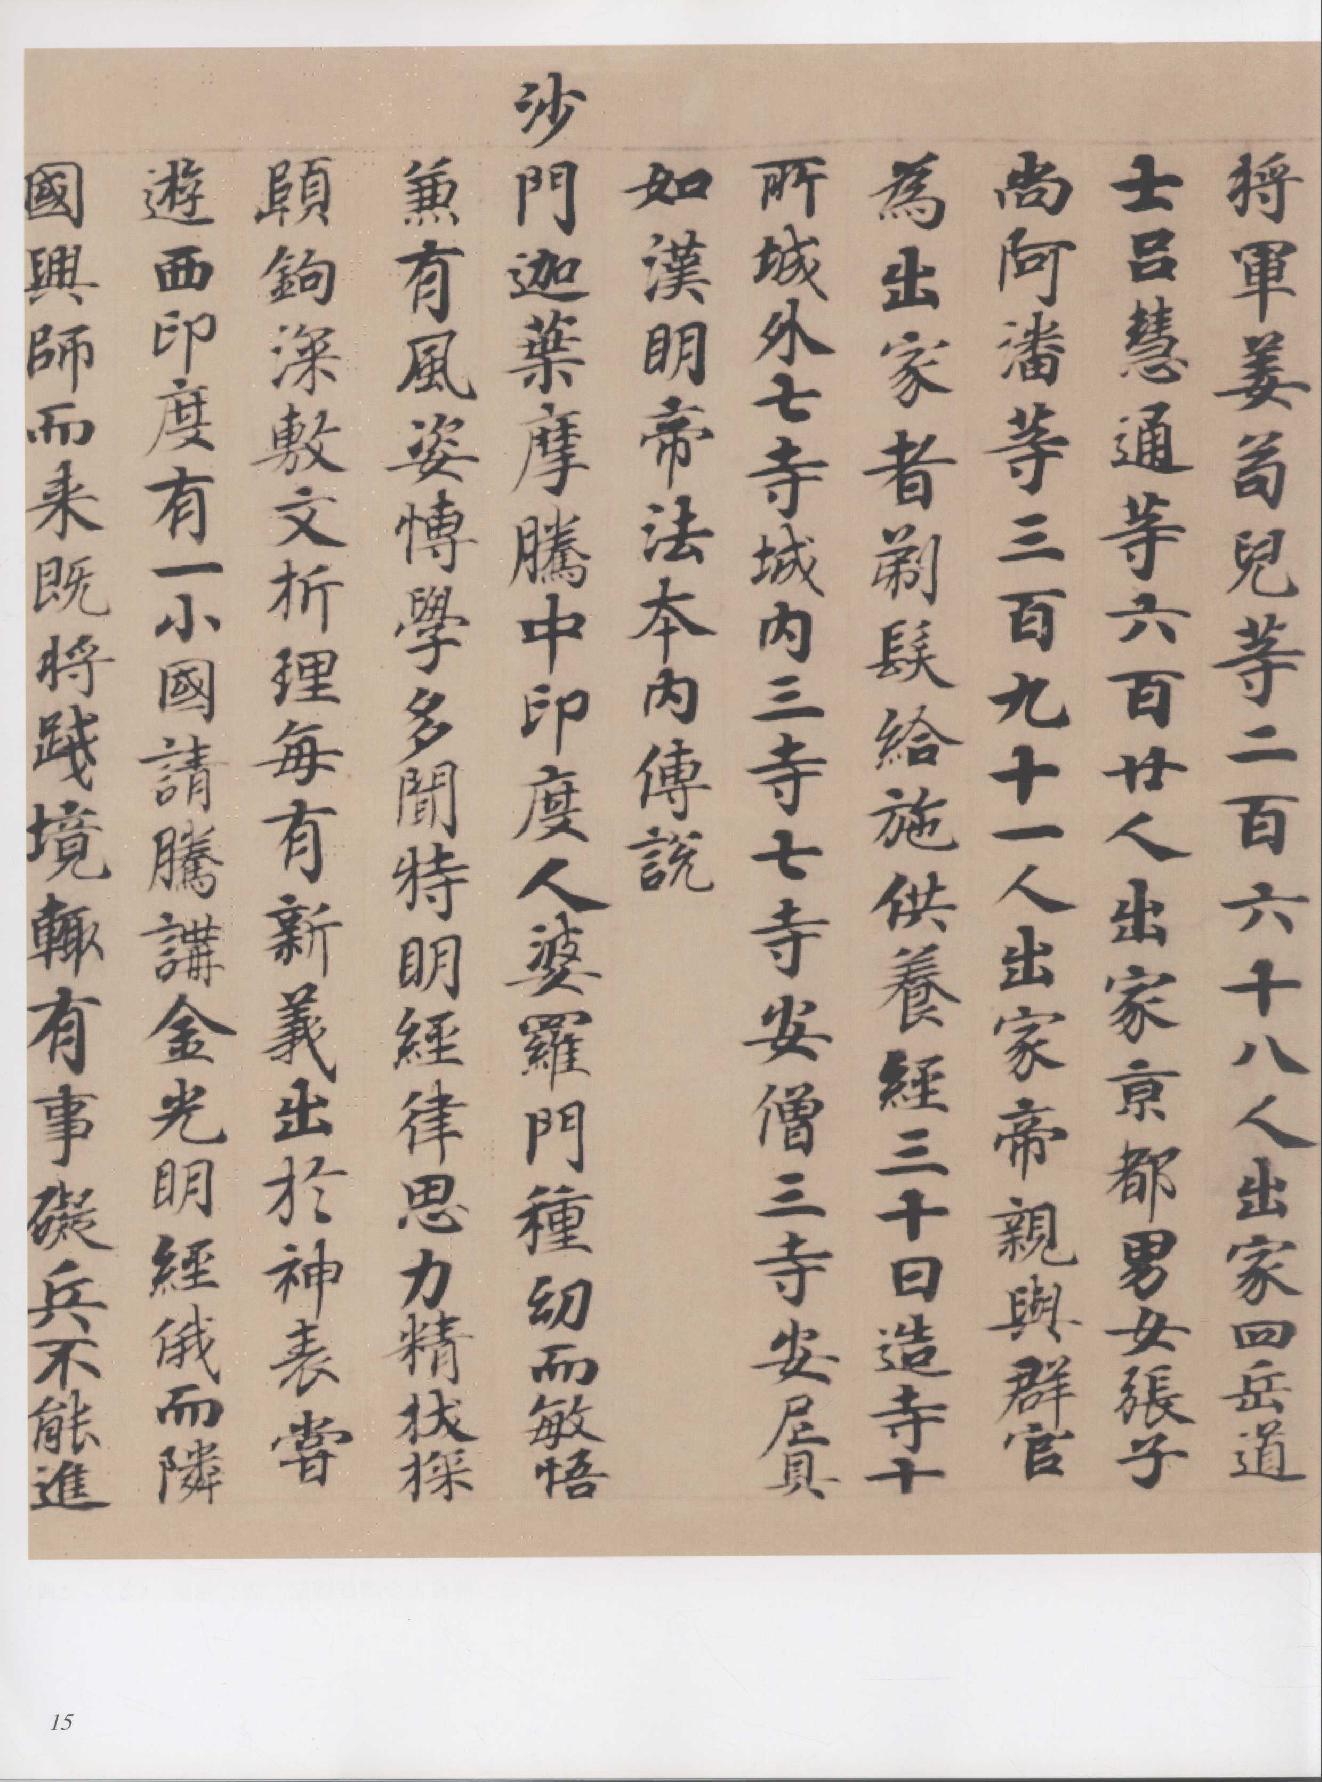 将軍姜荀兒等二百六十八人出家四岳道
士吕慧通等六百廿人出家京都男女張子
尚阿潘等三百九十一人出家帝親與群官
為出家者剃髮給施供養經三十日造寺十
所城外七寺城内三寺七寺安僧三寺安尼具
如漢明帝法本内傳説
沙門迦葉摩騰中印度人婆羅門種幼而敏悟
兼有風姿博學多聞特明經律思力精拔探
賾鉤深敷文析理每有新義出於神表甞
遊西印度有一小國請騰講金光明經俄而隣
國興師而来既将踐境輒有事礙兵不能進
15